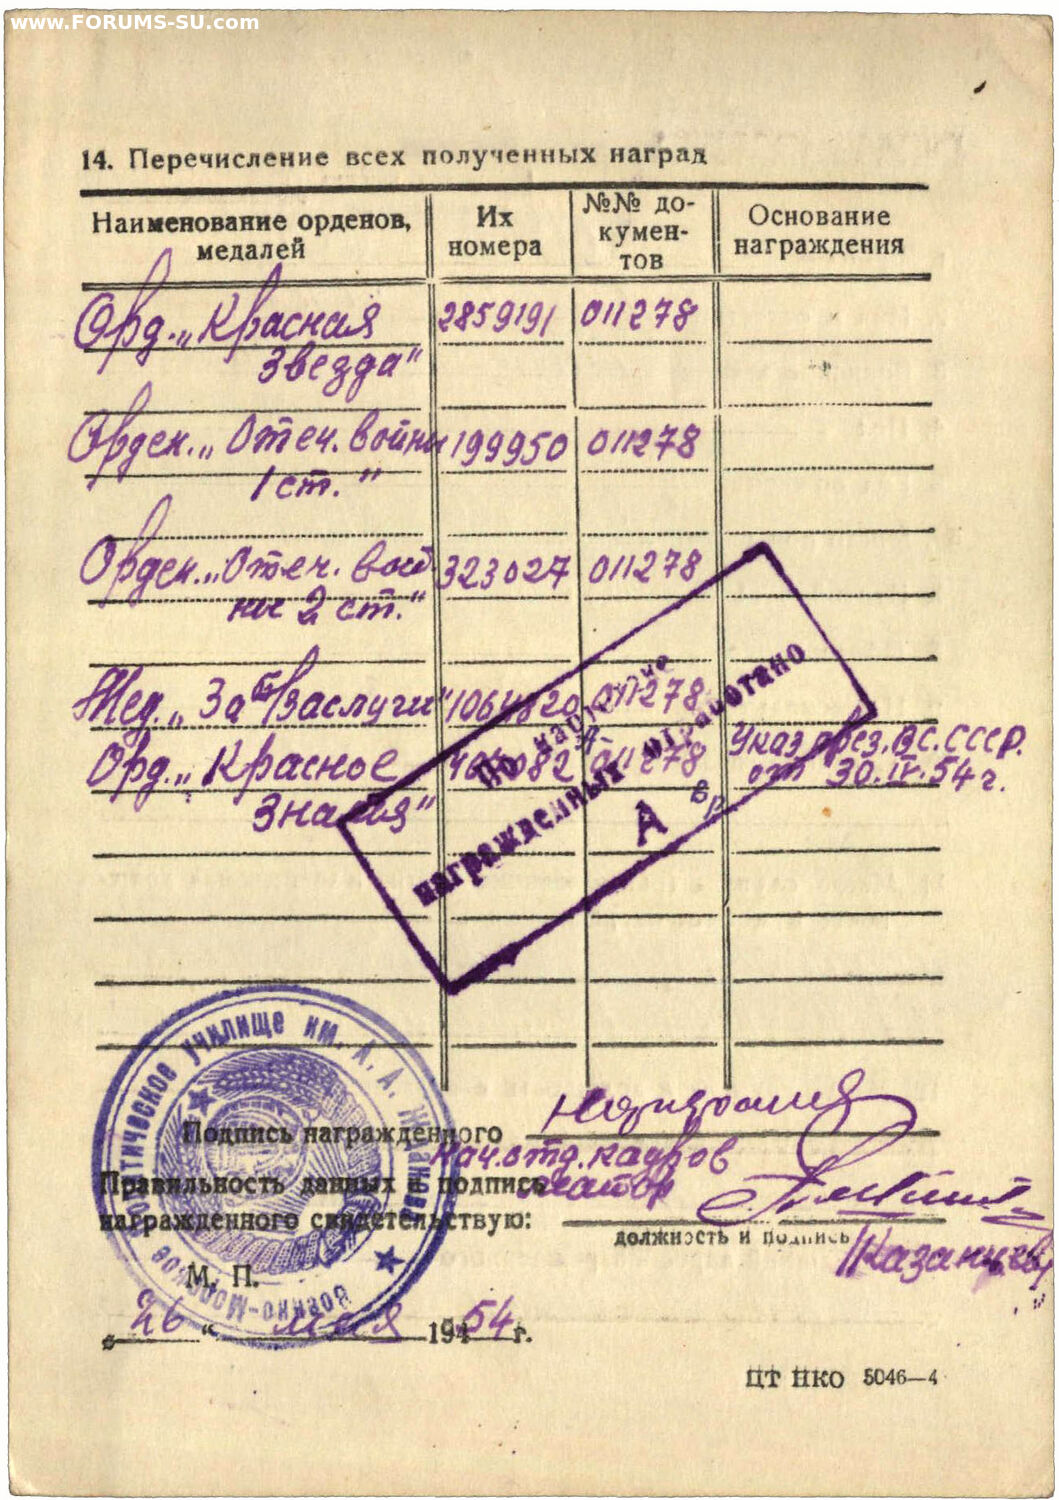 www.FORUMS-SU.com
14. Перечисление всех полученных наград
Наименование орденов, медалей
Их номера
№№ документов
Основание награждения
Орд. „Красная 2859191 011278
Звезда"
Орден. „Отеч. войны 199950 011278
1 ст."
Орден. „Отеч. вой 323027 011278
ны 2 ст."
Мед. „За б/заслуги" 011278
Орд. „Красное 011278 Указ през. ВС. СССР.
Знамя" от 30.IV.54 г.
По картотеке
награжденных отработано
А
училище им. А. А. Жданова
Военно-Морское политическое
Подпись награжденного
нач. отд. кадров
Правильность данных и подпись майор
награжденного свидетельствую:
должность и подпись
/Казанцев/
М. П.
„ 26 " мая 1954 г.
ЦТ НКО 5046—4